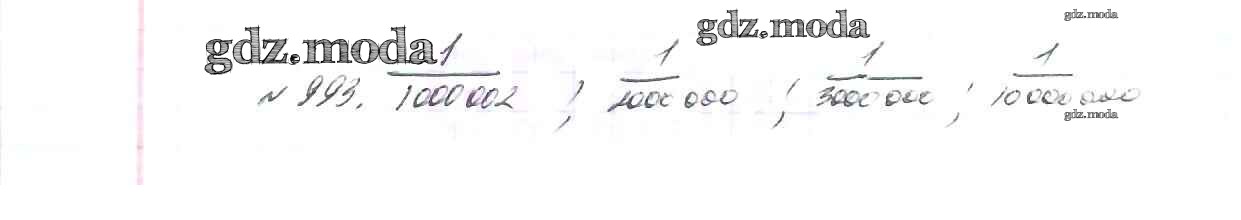 gdz.moda
gdz.moda
gdz.moda
№ 993. 1/1000002 ; 1/2000000 ; 1/3000000 ; 1/10000000
gdz.moda